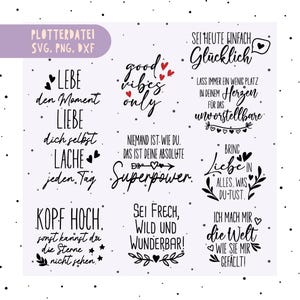 PLOTTERDATEI
SVG, PNG, DXF
LEBE
den Moment
LIEBE
dich selbst
LACHE
jeden Tag
good
vibes
only
SEI HEUTE EINFACH
Glücklich
LASS IMMER EIN WENIG PLATZ
IN DEINEM Herzen
FÜR DAS
unvorstellbare
NIEMAND IST WIE DU.
DAS IST DEINE ABSOLUTE
Superpower.
BRING
Liebe IN
ALLES, WAS
DU TUST.
KOPF HOCH,
sonst kannst du
die Sterne
nicht sehen.
SEI FRECH,
WILD UND
WUNDERBAR!
ICH MACH MIR
die Welt
WIE SIE MIR
GEFÄLLT!